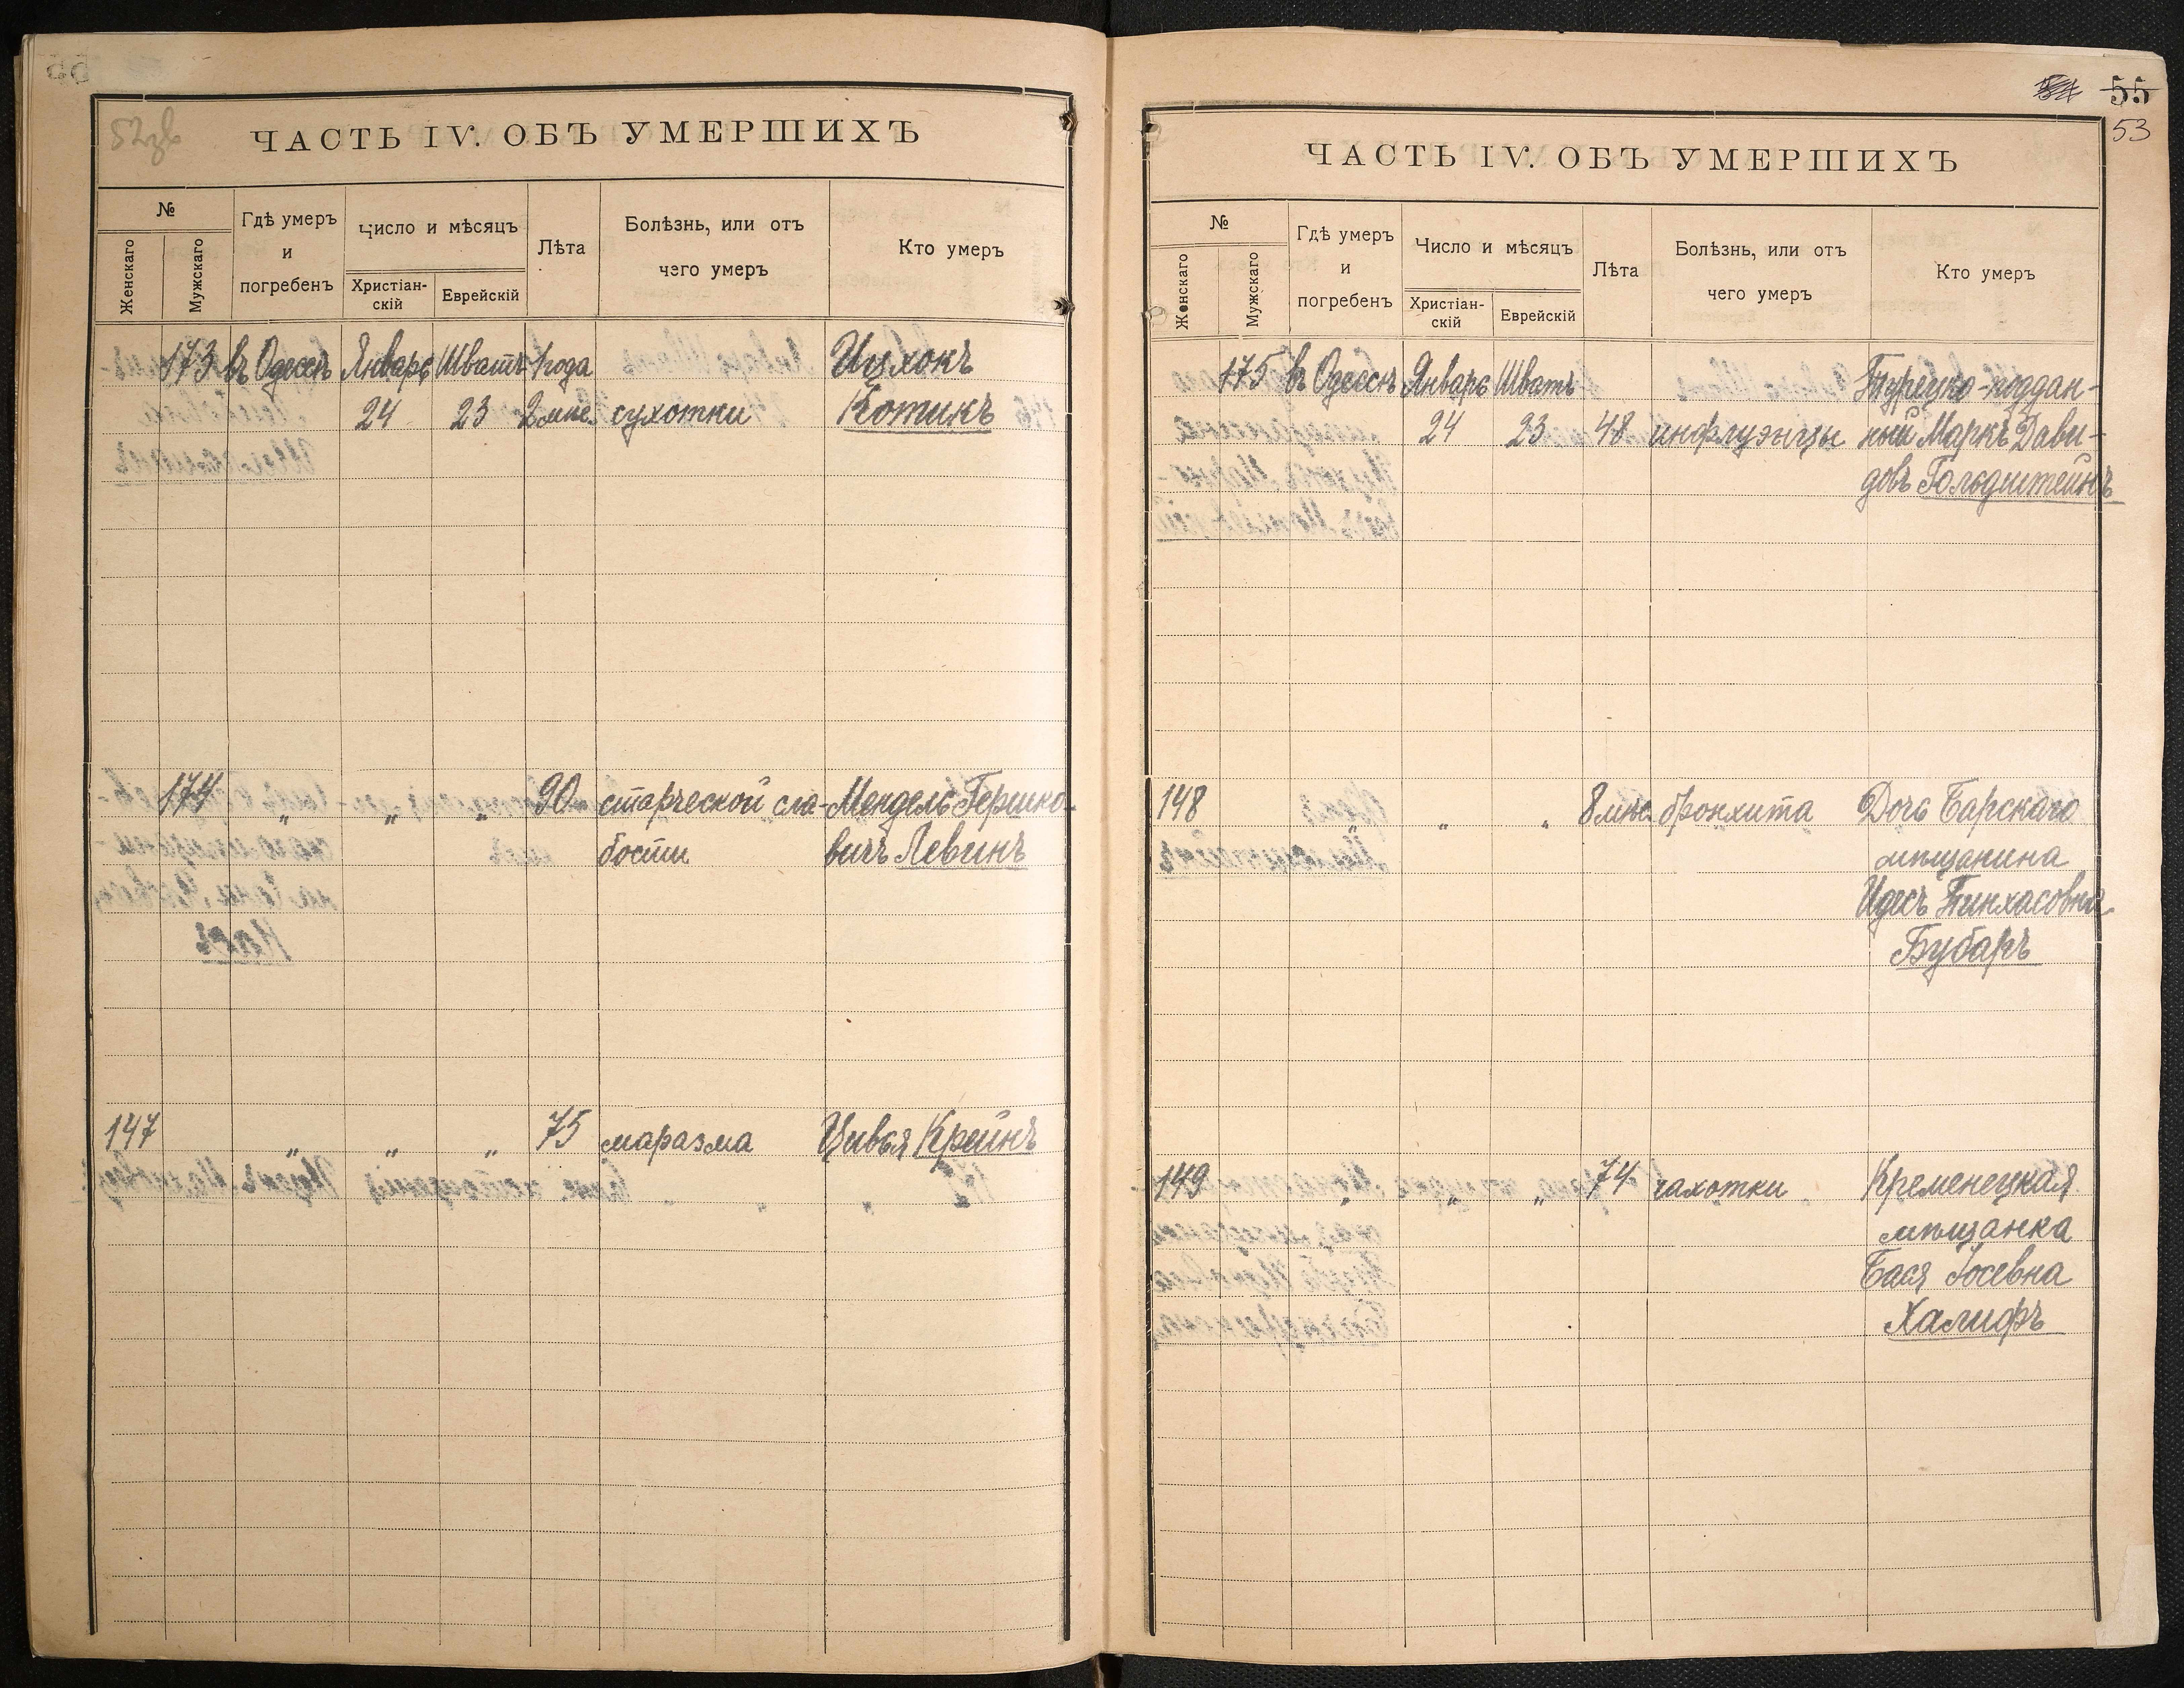 ЧАСТЬ IV. ОБЪ УМЕРШИХЪ
№
Женскаго
Мужскаго
Гдѣ умеръ
и
погребенъ
Число и мѣсяцъ
Христіан-
скій
Еврейскій
Лѣта
Болѣзнь, или отъ
чего умеръ
Кто умеръ
173 въ Одессѣ Январь Шватъ 1 года Ицхокъ
24 23 2 мѣс. сухотки Котикъ
174 „ „ „ 90 старческой сла- Мендель Гершко-
бости вичъ Левинъ
147 „ „ „ 75 маразма Цивья Крейнъ
55
53
ЧАСТЬ IV. ОБЪ УМЕРШИХЪ
№
Женскаго
Мужскаго
Гдѣ умеръ
и
погребенъ
Число и мѣсяцъ
Христіан-
скій
Еврейскій
Лѣта
Болѣзнь, или отъ
чего умеръ
Кто умеръ
175 въ Одессѣ Январь Шватъ Турецко-поддан-
24 23 48 инфлуэнцы ный Маркъ Дави-
довъ Гольдштейнъ
148 „ „ „ 8 мѣс. бронхита Дочь Барскаго
мѣщанина
Идесъ Пинхасовна
Бубаръ
149 „ „ „ 74 чахотки Кременецкая
мѣщанка
Бася Іосевна
Халифъ